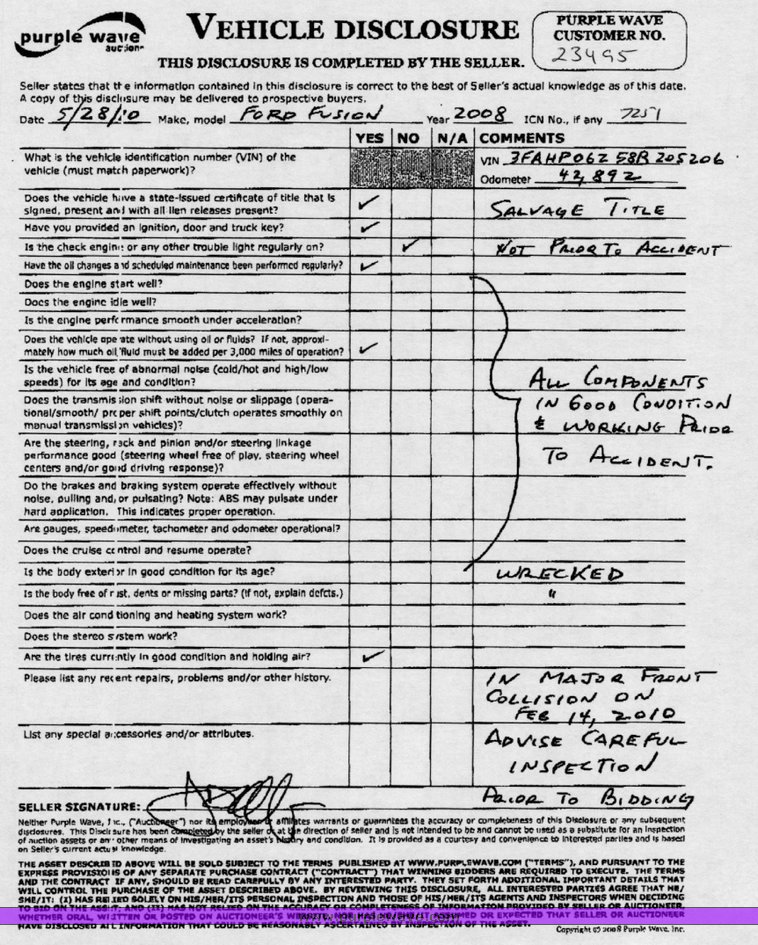 purple wave
auction
VEHICLE DISCLOSURE
THIS DISCLOSURE IS COMPLETED BY THE SELLER.
PURPLE WAVE
CUSTOMER NO.
23495
Seller states that the information contained in this disclosure is correct to the best of Seller's actual knowledge as of this date.
A copy of this disclosure may be delivered to prospective buyers.
Date 5/28/10 Make, model FORD FUSION Year 2008 ICN No., if any 7251
YES NO N/A COMMENTS
What is the vehicle identification number (VIN) of the
vehicle (must match paperwork)?
VIN 3FAHP06Z58R205206
Odometer 42,892
Does the vehicle have a state-issued certificate of title that is
signed, present and with all lien releases present?
✓
SALVAGE TITLE
Have you provided an ignition, door and truck key? ✓
Is the check engine or any other trouble light regularly on? ✓ NOT PRIOR TO ACCIDENT
Have the oil changes and scheduled maintenance been performed regularly? ✓
Does the engine start well?
Does the engine idle well?
Is the engine performance smooth under acceleration?
Does the vehicle operate without using oil or fluids? If not, approxi-
mately how much oil/fluid must be added per 3,000 miles of operation? ✓
Is the vehicle free of abnormal noise (cold/hot and high/low
speeds) for its age and condition?
Does the transmission shift without noise or slippage (opera-
tional/smooth/ proper shift points/clutch operates smoothly on
manual transmission vehicles)?
Are the steering, rack and pinion and/or steering linkage
performance good (steering wheel free of play, steering wheel
centers and/or good driving response)?
ALL COMPONENTS
IN GOOD CONDITION
& WORKING PRIOR
TO ACCIDENT.
Do the brakes and braking system operate effectively without
noise, pulling and/or pulsating? Note: ABS may pulsate under
hard application. This indicates proper operation.
Are gauges, speedometer, tachometer and odometer operational?
Does the cruise control and resume operate?
Is the body exterior in good condition for its age? WRECKED
Is the body free of rust, dents or missing parts? (If not, explain defcts.) "
Does the air conditioning and heating system work?
Does the stereo system work?
Are the tires currently in good condition and holding air? ✓
Please list any recent repairs, problems and/or other history.
IN MAJOR FRONT
COLLISION ON
FEB 14, 2010
List any special accessories and/or attributes.
ADVISE CAREFUL
INSPECTION
PRIOR TO BIDDING
SELLER SIGNATURE:
Neither Purple Wave, Inc., ("Auctioneer") nor its employees or affiliates warrants or guarantees the accuracy or completeness of this Disclosure or any subsequent
disclosures. This Disclosure has been completed by the seller or at the direction of seller and is not intended to be and cannot be used as a substitute for an inspection
of auction assets or any other means of investigating an asset's history and condition. It is provided as a courtesy and convenience to interested parties and is based
on Seller's current actual knowledge.
THE ASSET DESCRIBED ABOVE WILL BE SOLD SUBJECT TO THE TERMS PUBLISHED AT WWW.PURPLEWAVE.COM ("TERMS"), AND PURSUANT TO THE
EXPRESS PROVISIONS OF ANY SEPARATE PURCHASE CONTRACT ("CONTRACT") THAT WINNING BIDDERS ARE REQUIRED TO EXECUTE. THE TERMS
AND THE CONTRACT IF ANY, SHOULD BE READ CAREFULLY BY ANY INTERESTED PARTY. THEY SET FORTH ADDITIONAL IMPORTANT DETAILS THAT
WILL CONTROL THE PURCHASE OF THE ASSET DESCRIBED ABOVE. BY REVIEWING THIS DISCLOSURE, ALL INTERESTED PARTIES AGREE THAT HE/
SHE/IT: (I) HAS RELIED SOLELY ON HIS/HER/ITS PERSONAL INSPECTION AND THOSE OF HIS/HER/ITS AGENTS AND INSPECTORS WHEN DECIDING
TO BID ON THE ASSET; AND (II) HAS NOT RELIED ON THE ACCURACY OR COMPLETENESS OF INFORMATION PROVIDED BY SELLER OR AUCTIONEER,
WHETHER ORAL, WRITTEN OR POSTED ON AUCTIONEER'S OR EXPECTED THAT SELLER OR AUCTIONEER
HAVE DISCLOSED ALL INFORMATION THAT COULD BE REASONABLY ASCERTAINED BY INSPECTION OF THE ASSET.
Copyright © 2008 Purple Wave, Inc.